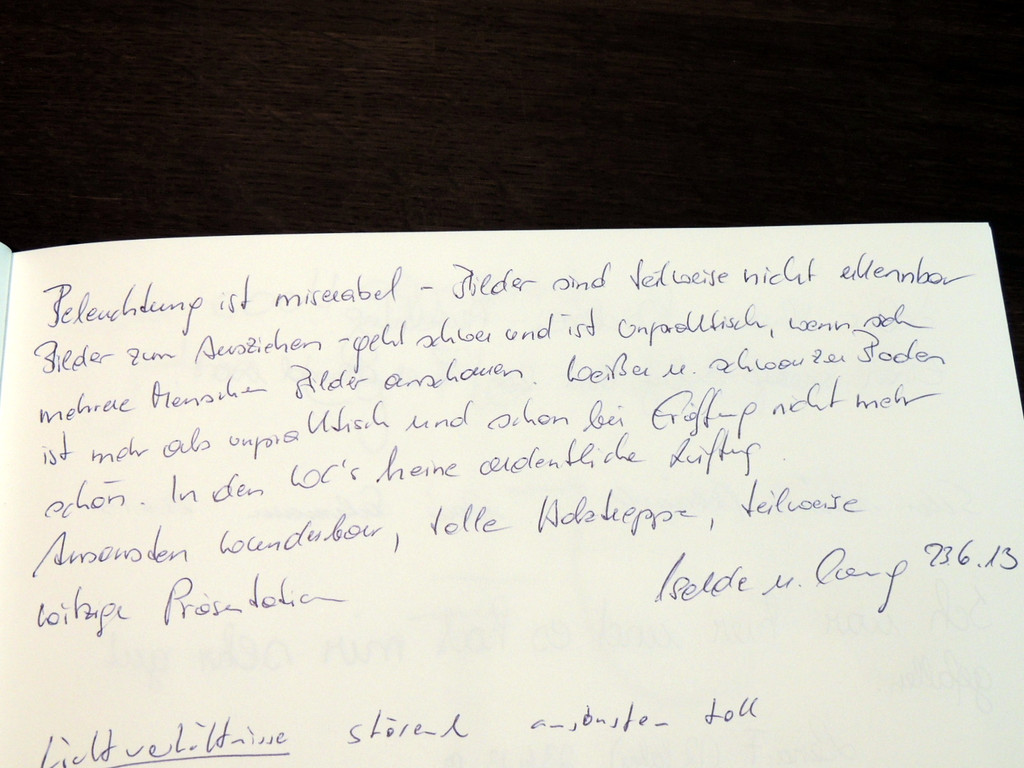 Beleuchtung ist miserabel - Bilder sind teilweise nicht erkennbar
Bilder zum Ausziehen - geht schwer und ist unpraktisch, wenn sich
mehrere Menschen Bilder anschauen. Weißer u. schwarzer Boden
ist mehr als unpraktisch und schon bei Eröffung nicht mehr
schön. In den WC's keine ordentliche Lüftung.
Ansonsten wunderbar, tolle Holztreppe, teilweise
witzige Präsentation
Isolde u. 23.6.13
Lichtverhältnisse störend ansonsten toll